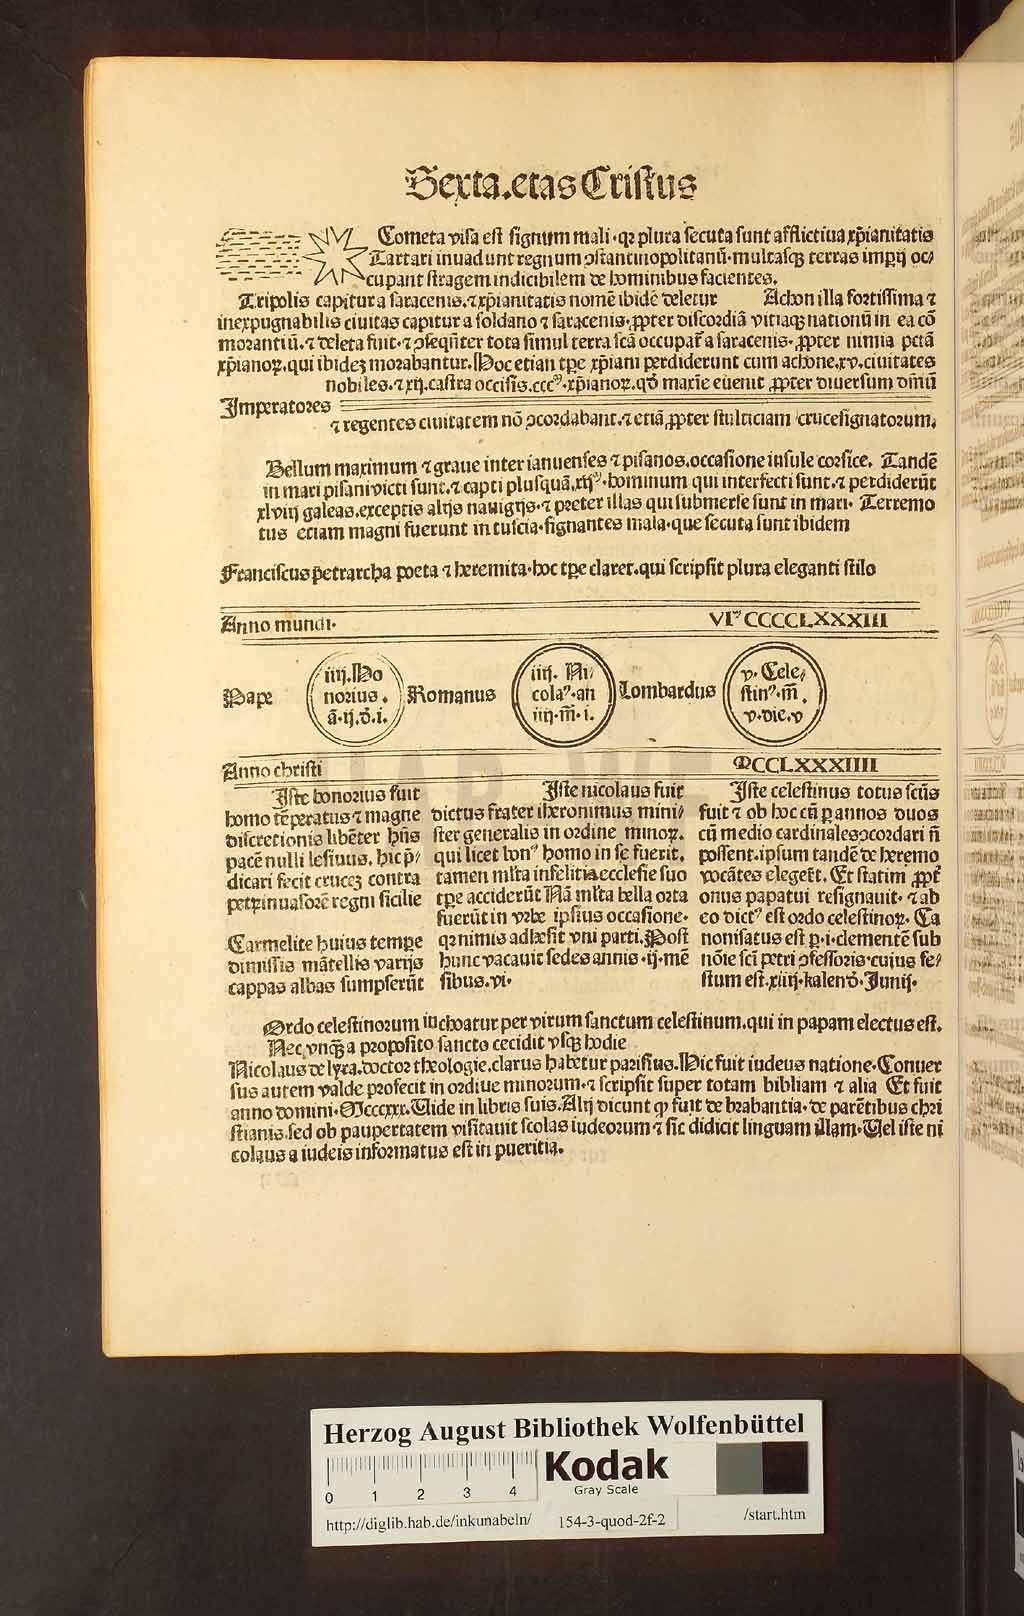 Sexta.etas Cristus
Cometa visa est signum mali·qꝛ plura secuta sunt afflictiua xp̄ianitatis
Tartari inuadunt regnum ↄstantinopolitanū·multasqꝫ terras imꝑij oc/
cupant stragem indicibilem de hominibus facientes.
Tripolis capitur a saracenis.⁊ xp̄ianitatis nomē ibidē deletur Achon illa fortissima ⁊
inexpugnabilis ciuitas capitur a soldano ⁊ saracenis·ꝓpter discordiā vitiaqꝫ nationū in ea cō
morantiū.⁊ deleta fuit·⁊ ↄseqūter tota simul terra scā occupat̄ a saracenis·ꝓpter nimia pctā
xp̄ianoꝝ.qui ibidez morabantur.Hoc etian tp̄e xp̄iani perdiderunt cum achone.xv.ciuitates
nobiles.⁊ xij.castra occisis.ccc⁹·xp̄ianoꝝ.qd̄ maxīe euenit ꝓpter diuersum dm̄ū
Imperatores
⁊ regentes ciuitatem nō ↄcordabant.⁊ etiā ꝓpter stulticiam crucesignatorum.
Bellum maximum ⁊ graue inter ianuenses ⁊ pisanos.occasione iusule corsice. Tandē
in mari pisani victi sunt.⁊ capti plusquā.xij⁹·hominum qui interfecti sunt.⁊ perdiderūt
xlviij galeas.exceptis alijs nauigijs·⁊ preter illas qui submerse sunt in mari· Terremo
tus etiam magni fuerunt in tuscia·signantes mala·que secuta sunt ibidem
Franciscus petrarcha poeta ⁊ heremita·hoc tp̄e claret.qui scripsit plura eleganti stilo
Anno mundi· VIᵐ CCCCCLXXXIII
Pape iiij.Ho norius. ā·ij.d̄.i. Romanus iiij. Ni/ cola⁹·an iiij·m̄·i. Lombardus v·Cele/ stin⁹·m̄. v·die.v
Anno christi MCCLXXXIIII
Iste honorius fuit
homo tēperatus ⁊ magne
discretionis libēter hn̄s
pacē nulli lesiuus. hic p̄/
dicari fecit crucez contra
petꝝ inuasorē regni sicilie
Carmelite huius tempe
dimissis mātellis varijs
cappas albas sumpserūt
Iste nicolaus fuit
dictus frater iheronimus mini/
ster generalis in ordine minoꝝ.
qui licet bon⁹ homo in se fuerit.
tamen ml̄ta infelitia ecclesie suo
tp̄e acciderūt Nā ml̄ta bella orta
fuerūt in vrbe ipsius occasione·
qꝛ nimis adhesit vni parti.Post
hunc vacauit sedes annis·ij·mē
sibus.vi·
Iste celestinus totus scūs
fuit ⁊ ob hoc cū ꝑ annos duos
cū medio cardinales ↄcordari n̄
possent.ipsum tandē de heremo
vocātes elegeēt. Et statim ꝓpt̄
onus papatui resignauit·⁊ ab
eo dict⁹ est ordo celestinoꝝ· Ca
nonisatus est p·i·clementē sub
nōie scī petri ↄfessoris·cuius fe/
stum est.xiiij·kalend̄·Junij·
Ordo celestinorum inchoatur per virum sanctum celestinum.qui in papam electus est.
Nec vnqꝫ̄ a proposito sancto cecidit vsqꝫ hodie
Nicolaus de lyra.doctor theologie.clarus habetur parisius.Hic fuit iudeus natione·Conuer
sus autem valde profecit in ordiue minorum·⁊ scripsit super totam bibliam ⁊ alia Et fuit
anno domini·Mcccxxx.Uide in libris suis.Alij dicunt ꝙ fuit de brabantia·de parētibus chri
stianis.sed ob paupertatem visitauit scolas iudeorum ⁊ sic didicit linguam illam·Uel iste ni
colaus a iudeis informatus est in pueritia.
HAB WF
Herzog August Bibliothek Wolfenbüttel
0 1 2 3 4
Kodak
Gray Scale
http://diglib.hab.de/inkunabeln/ 154-3-quod-2f-2 /start.htm